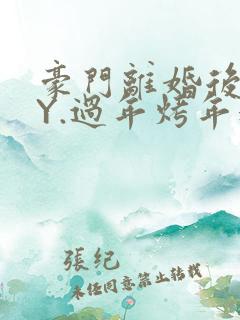 豪門離婚後
Y.過年烤年
張纪
未经同意禁止转载